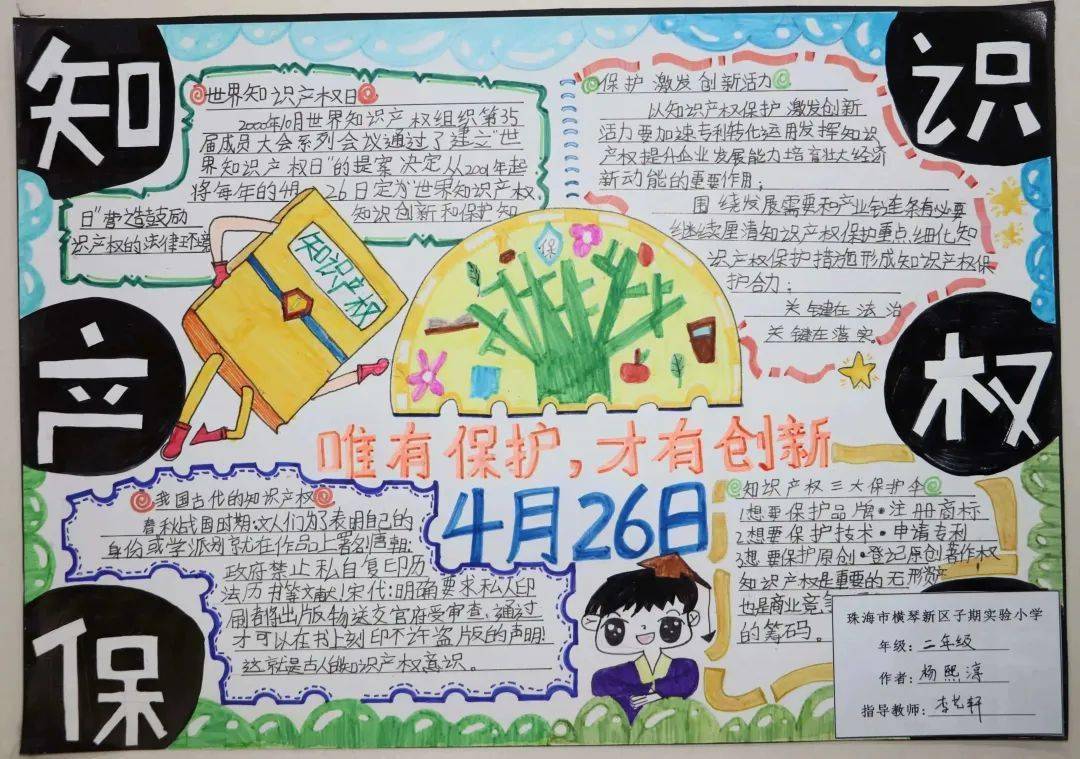 知
识
产
权
保
世界知识产权日
2000年10月世界知识产权组织第35
届成员大会系列会议通过了建立"世
界知识产权日"的提案决定从2001年起
将每年的4月26日定为"世界知识产权
日"营造鼓励知识创新和保护知
识产权的法律环境
保护 激发创新活力
以知识产权保护激发创新
活力要加速专利转化运用发挥知识
产权提升企业发展能力培育壮大经济
新动能的重要作用;
围绕发展需要和产业链条有必要
继续厘清知识产权保护重点,细化知
识产权保护措施形成知识产权保
护合力;
关键在法治
关键在落实。
知识产权
保
唯有保护,才有创新
4月26日
我国古代的知识产权
春秋战国时期:文人们为了表明自己的
身份或学派别就在作品上署名!唐朝:
政府禁止私自复印历
法,历书等文献!宋代:明确要求私人印
刷者将出版物送交官府受审查,通过
才可以在书上刻印不许盗版的声明!
这就是古人的知识产权意识。
知识产权三大保护伞
1.想要保护品牌·注册商标
2.想要保护技术·申请专利
3.想要保护原创·登记原创著作权
知识产权是重要的无形资
也是商业竞争
的筹码。
珠海市横琴新区子期实验小学
年级:二年级
作者:杨熙淳
指导教师:李艺轩